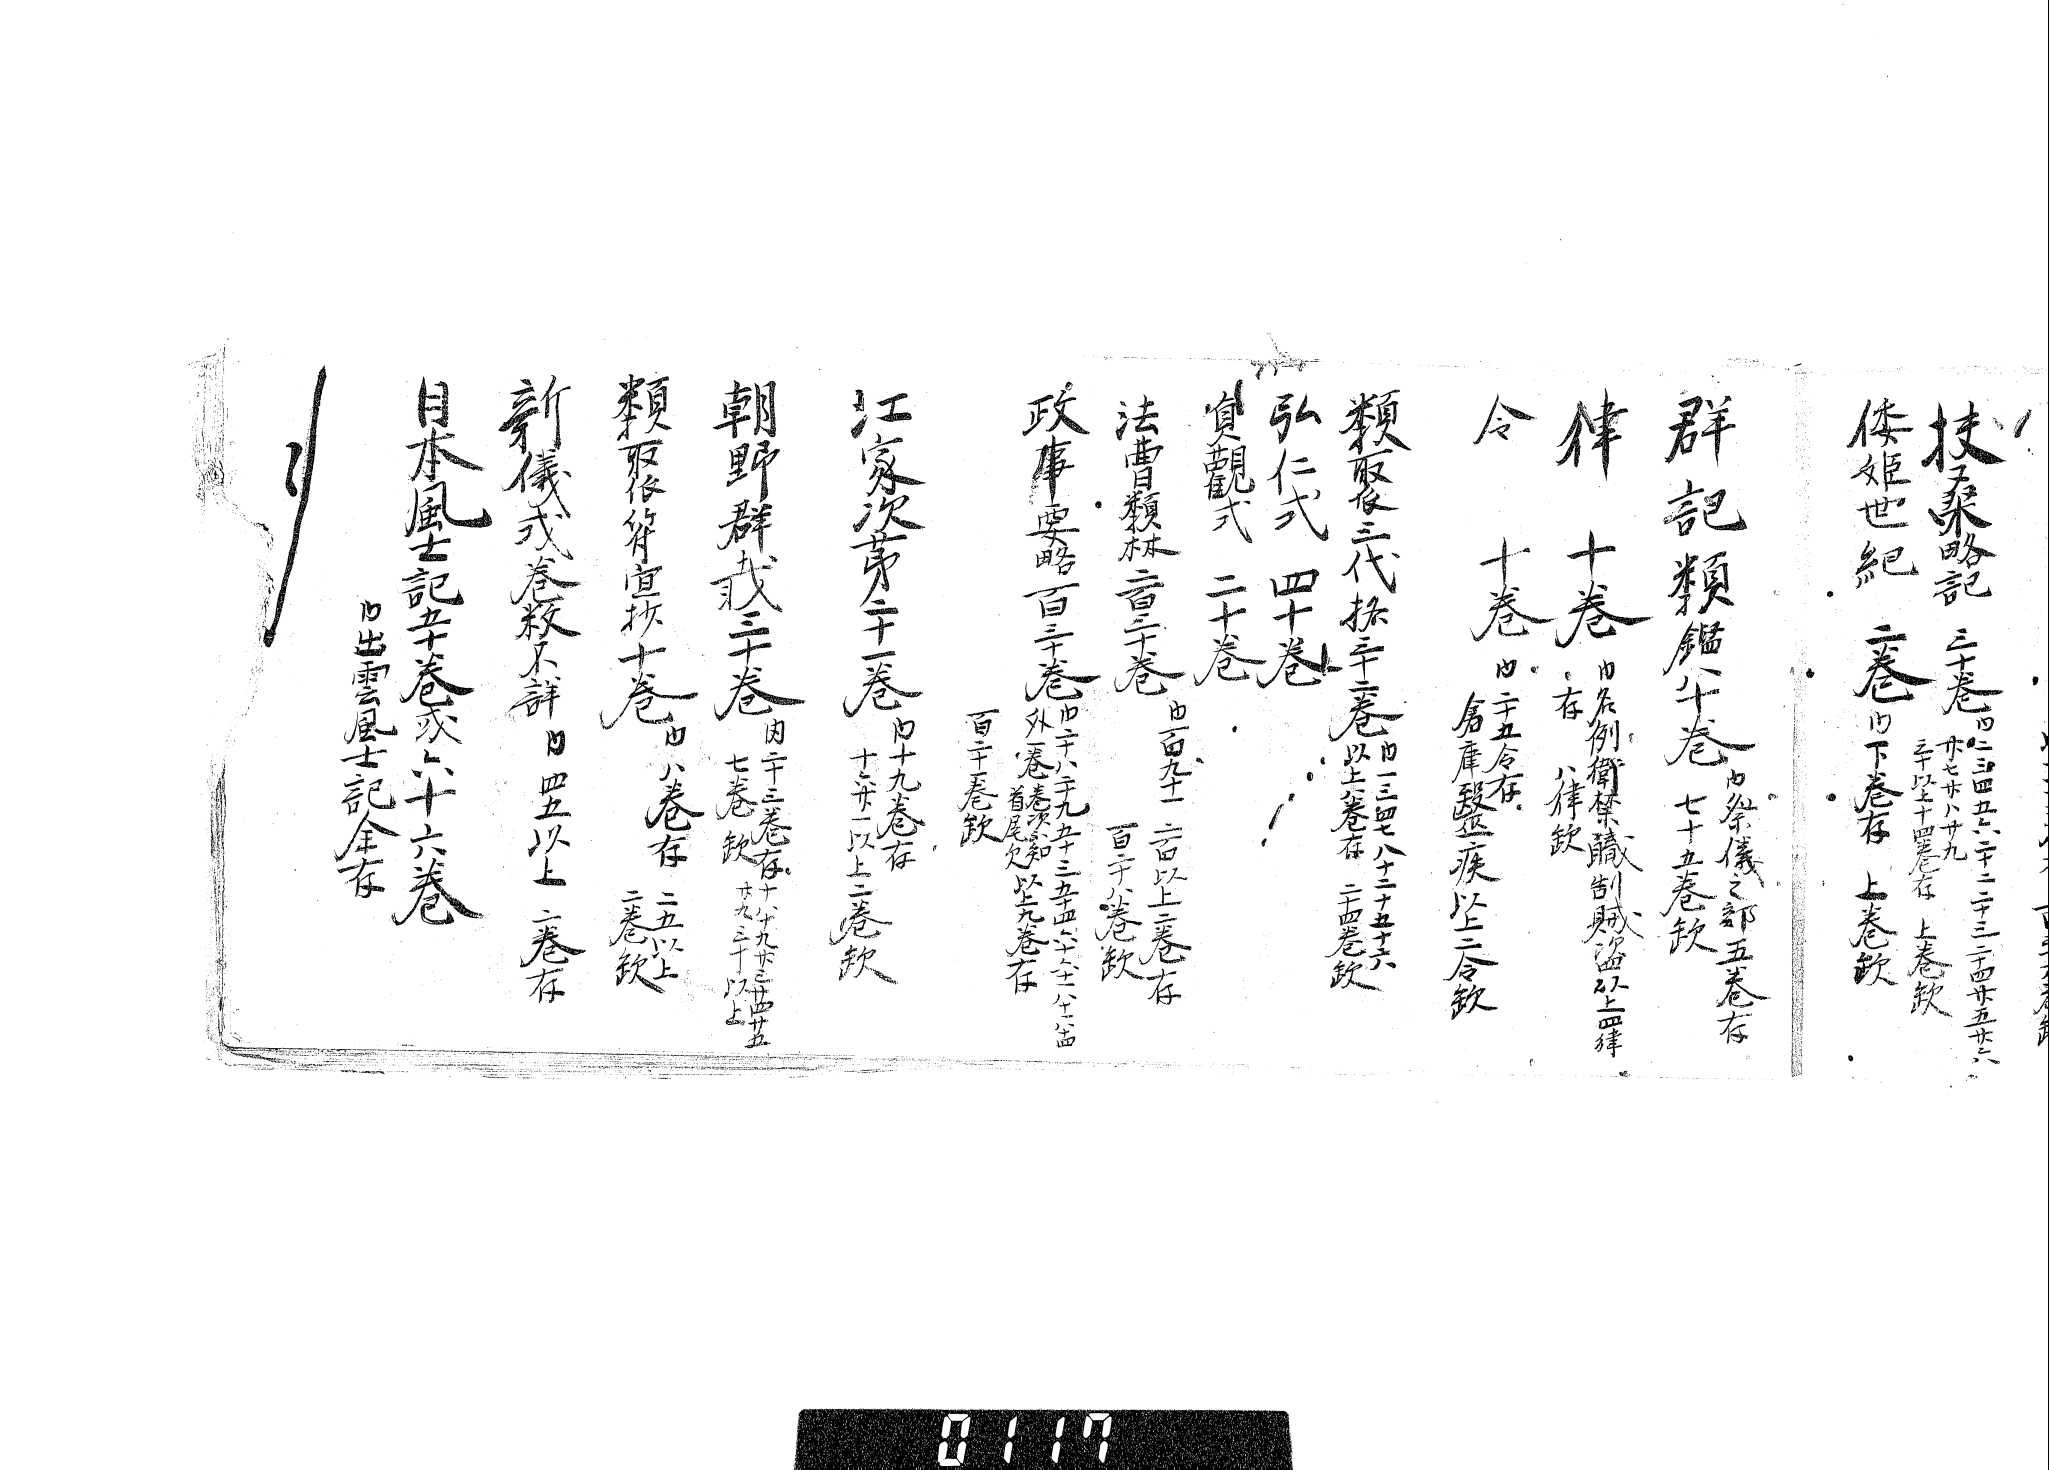 扶桑略記 三十巻 内二三四五六二十二二十三二十四廿五廿六
廿七廿八廿九
三十以上十四巻存 上巻欽
倭姫世紀 二巻 内下巻存 上巻欽
群記類鑑八十巻 内祭儀之部五巻存
七十五巻欽
律 十巻 内名例衛禁職制賊盗以上四律
存 八律欽
令 十巻 内二十五令存
倉庫醫疾以上二令欽
類聚三代格三十二巻 内一三四七八十二十五十六
以上八巻存 二十四巻欽
弘仁式 四十巻
貞觀式 二十巻
法曹類林二百三十巻 内一百九十一 二百以上二巻存
百二十八巻欽
政事要略百三十巻 内二十八二十九五十三五十四六十六十一八十一八十四
外一巻巻次不知首尾欠 以上九巻存
百二十一巻欽
江家次第二十一巻 内十九巻存
十六廿一以上二巻欽
朝野群載三十巻 内二十三巻存
七巻欽 十八十九廿三廿四廿五
廿九三十以上
類聚符宣抄十巻 内八巻存 二五以上
二巻欽
新儀式巻数不詳 内四五以上 二巻存
日本風土記五十巻或六十六巻
内出雲風土記全存
0117